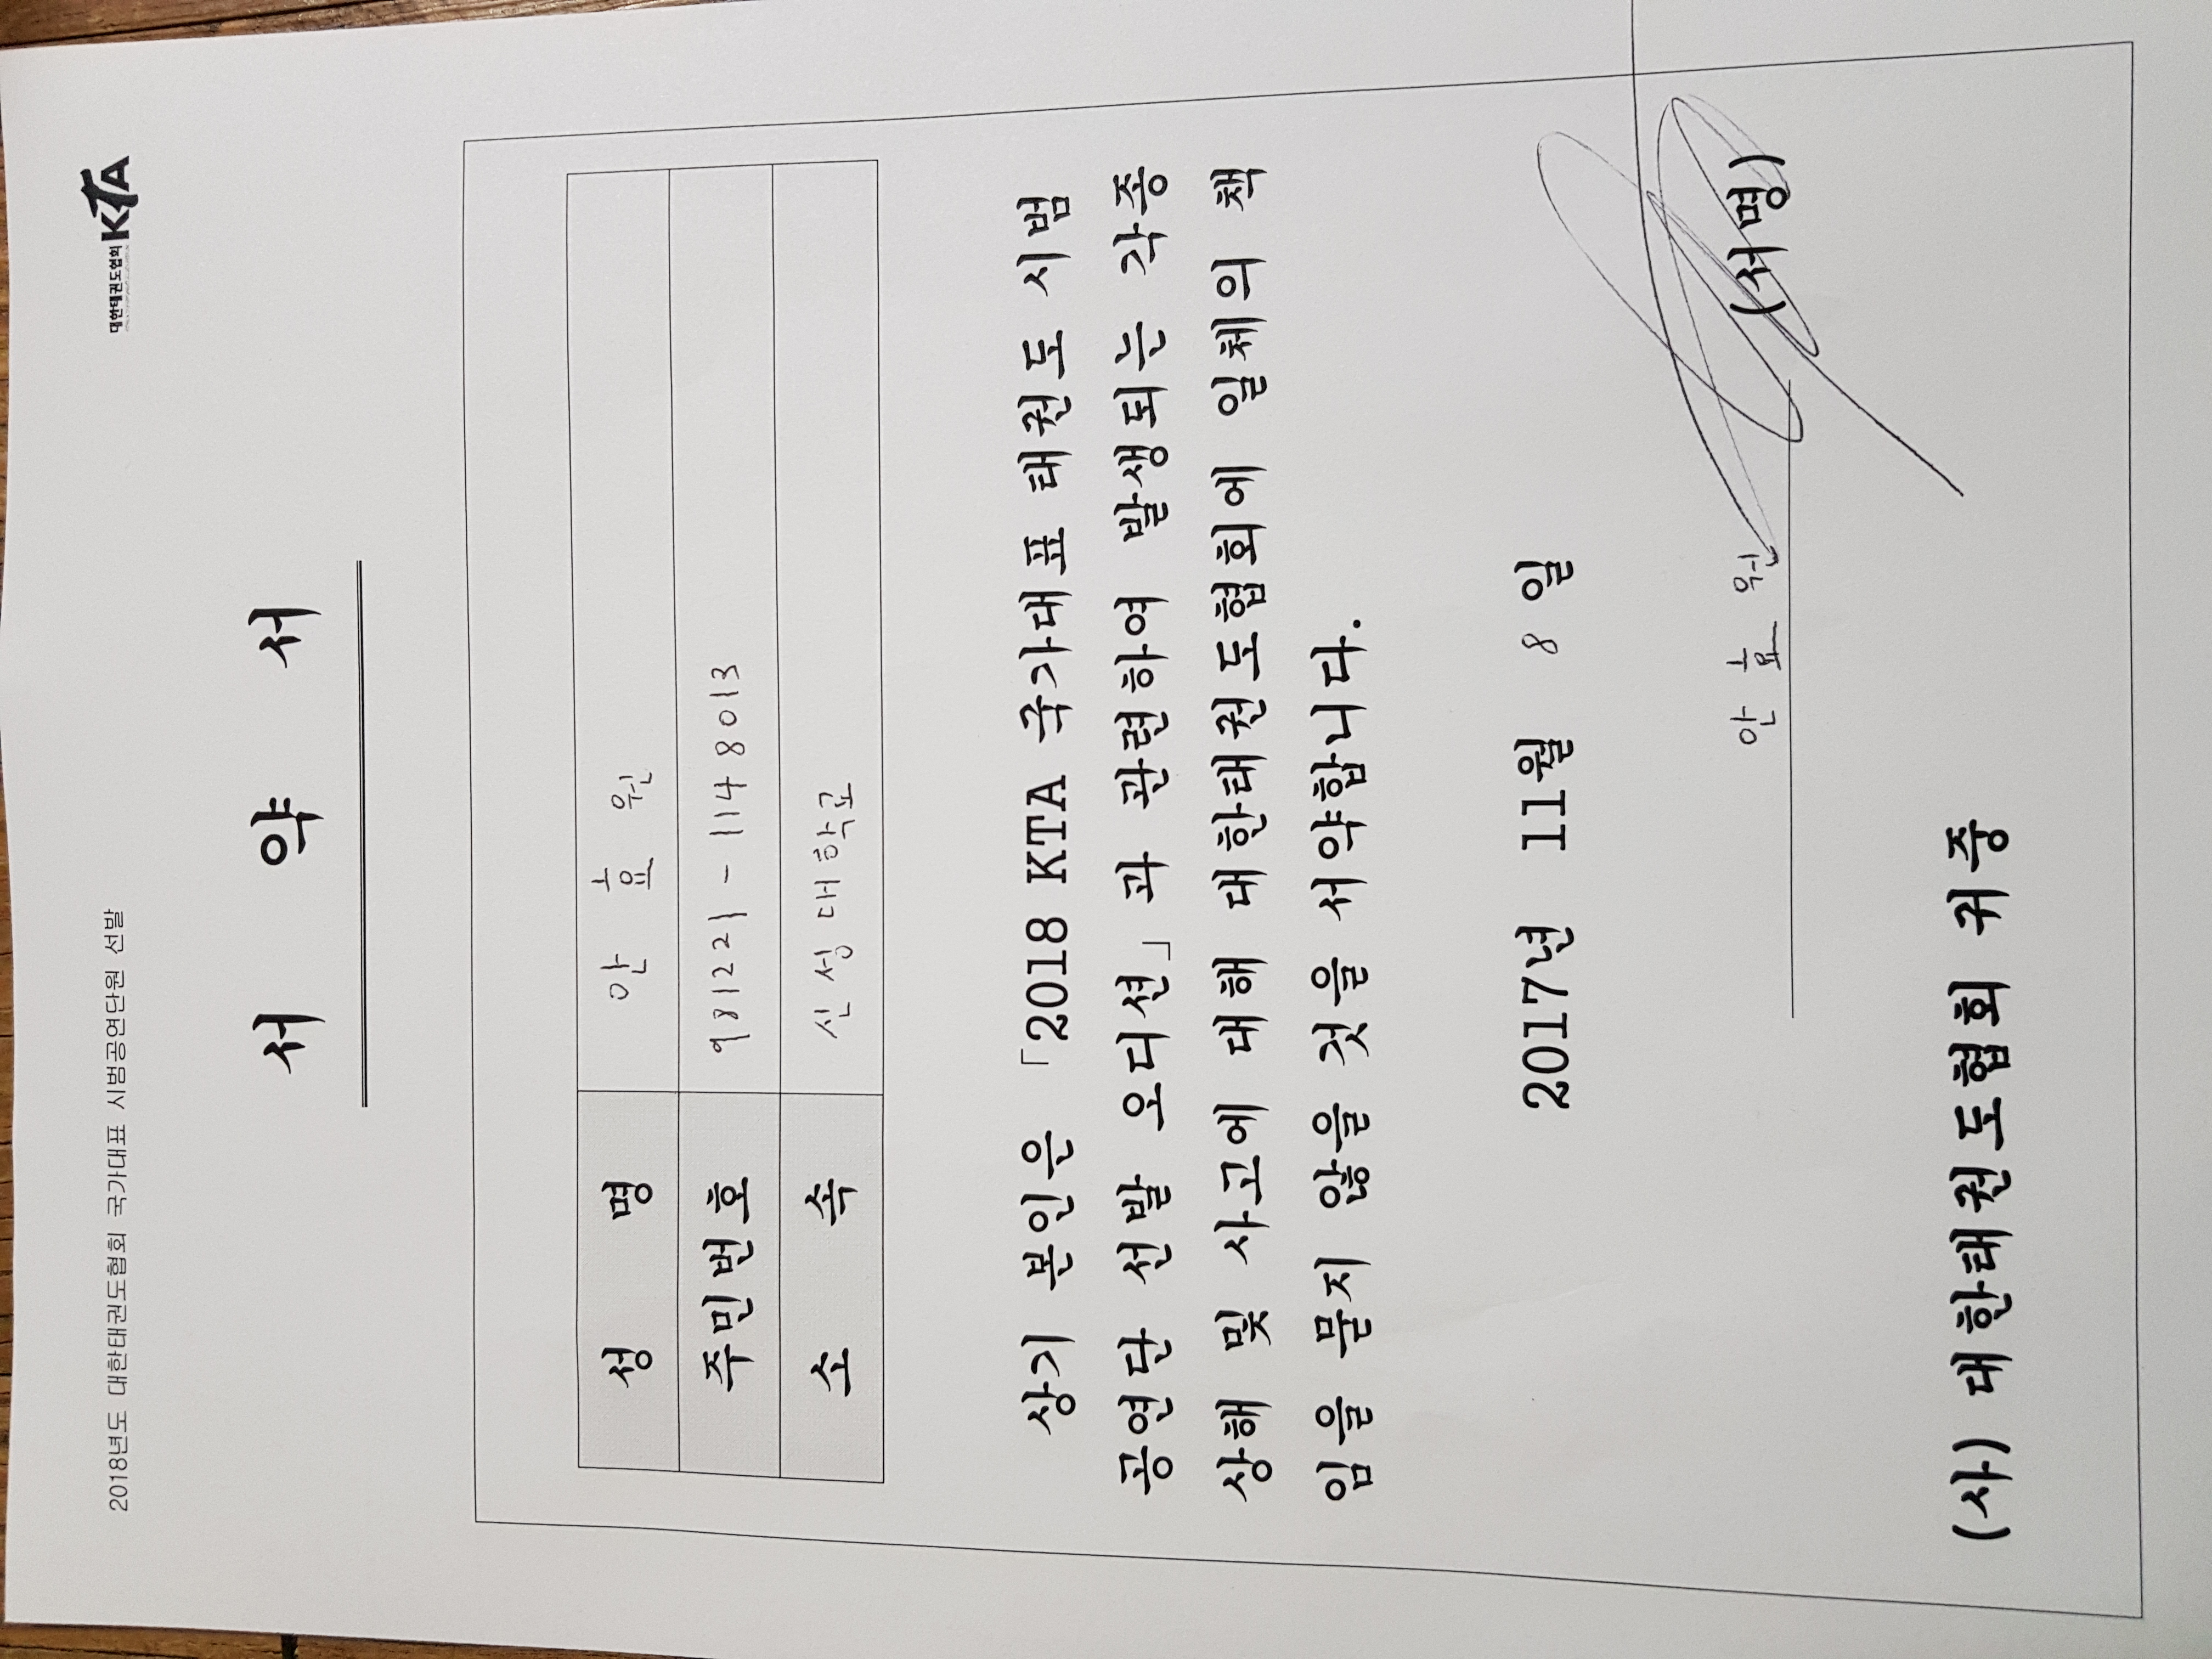 2018년도 대한태권도협회 국가대표 시범공연단원 선발
대한태권도협회 KTA
서 약 서
성 명 안 효 원
주민번호 981221-1148013
소 속 신성대학교
상기 본인은 「2018 KTA 국가대표 태권도 시범
공연단 선발 오디션」과 관련하여 발생되는 각종
상해 및 사고에 대해 대한태권도협회에 일체의 책
임을 묻지 않을 것을 서약합니다.
2017년 11월 8일
안 효 원 (서명)
(사) 대한태권도협회 귀중